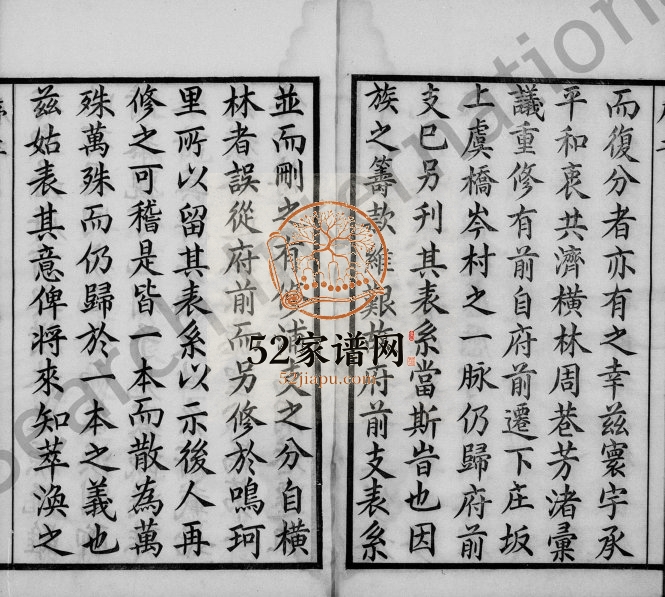 而復分者亦有之幸茲寰宇承
平和衷共濟橫林周巷芳渚彙
議重修有前自府前遷下庄坂
上虞橋岑村之一脉仍歸府前
支巳另刊其表系當斯旹也因
族之籌款維艱 府前支表系
並而刪 有 之分自橫
林者誤從府前而另修於鳴珂
里所以留其表系以示後人再
修之可稽是皆一本而散為萬
殊萬殊而仍歸於一本之義也
茲姑表其意俾將來知萃渙之
52家谱网
52jiapu.com
Search International